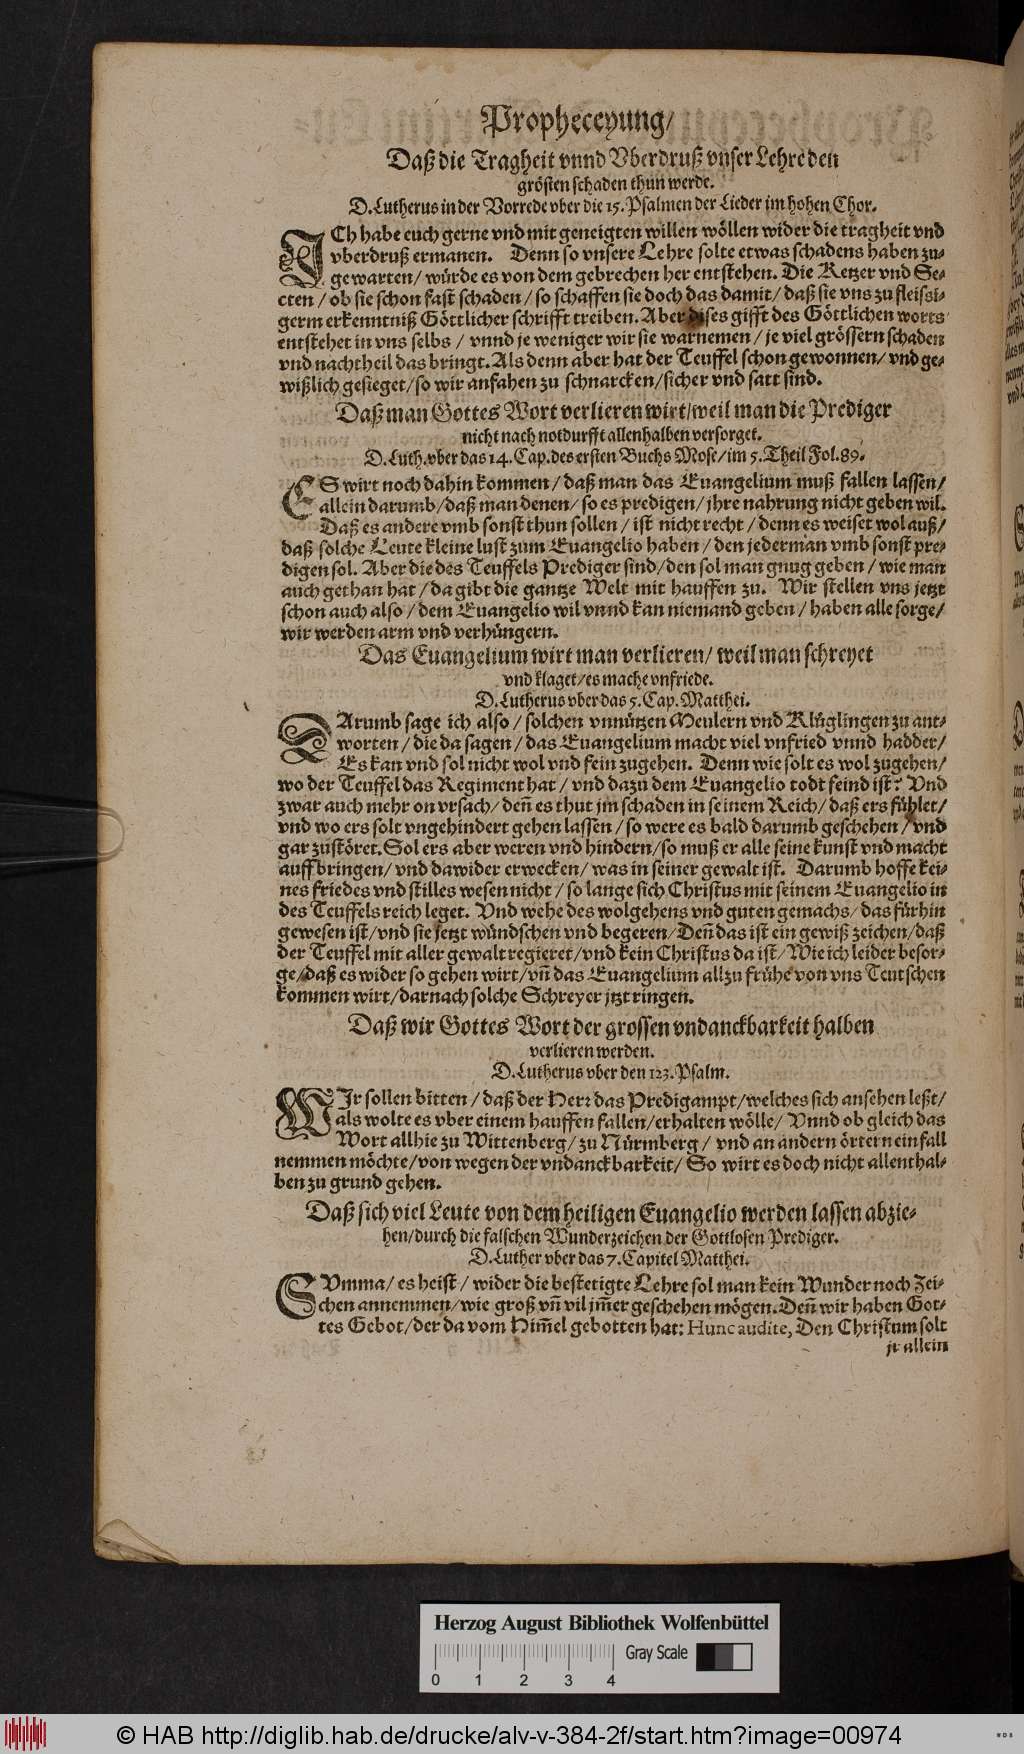 Propheceyung/
Daß die Tragheit vnnd Vberdruß vnser Lehre den
grösten schaden thun werde.
D. Lutherus in der Vorrede vber die 15. Psalmen der Lieder im hohen Chor.
ICh habe euch gerne vnd mit geneigten willen wöllen wider die tragheit vnd
vberdruß ermanen. Denn so vnsere Lehre solte etwas schadens haben zu-
gewarten/ würde es von dem gebrechen her entstehen. Die Ketzer vnd Se-
cten/ ob sie schon fast schaden/ so schaffen sie doch das damit/ daß sie vns zu fleissi-
germ erkenntniß Göttlicher schrifft treiben. Aber dises gifft des Göttlichen worts
entstehet in vns selbs/ vnnd je weniger wir sie warnemen/ je viel grössern schaden
vnd nachtheil das bringt. Als denn aber hat der Teuffel schon gewonnen/ vnd ge-
wißlich gesieget/ so wir anfahen zu schnarcken/ sicher vnd satt sind.
Daß man Gottes Wort verlieren wirt/ weil man die Prediger
nicht nach notdurfft allenhalben versorget.
D. Luth. vber das 14. Cap. des ersten Buchs Mose/ im 5. Theil Fol. 89.
ES wirt noch dahin kommen/ daß man das Euangelium muß fallen lassen/
allein darumb/ daß man denen/ so es predigen/ jhre nahrung nicht geben wil.
Daß es andere vmb sonst thun sollen/ ist nicht recht/ denn es weiset wol auß/
daß solche Leute kleine lust zum Euangelio haben/ den jederman vmb sonst pre-
digen sol. Aber die des Teuffels Prediger sind/ den sol man gnug geben/ wie man
auch gethan hat/ da gibt die gantze Welt mit hauffen zu. Wir stellen vns jetzt
schon auch also/ dem Euangelio wil vnnd kan niemand geben/ haben alle sorge/
wir werden arm vnd verhüngern.
Das Euangelium wirt man verlieren/ weil man schreyet
vnd klaget/ es mache vnfriede.
D. Lutherus vber das 5. Cap. Matthei.
DArumb sage ich also/ solchen vnnützen Meulern vnd Klüglingen zu ant-
worten/ die da sagen/ das Euangelium macht viel vnfried vnnd hadder/
Es kan vnd sol nicht wol vnd fein zugehen. Denn wie solt es wol zugehen/
wo der Teuffel das Regiment hat/ vnd dazu dem Euangelio todt feind ist? Vnd
zwar auch mehr on vrsach/ deñ es thut jm schaden in seinem Reich/ daß ers fühlet/
vnd wo ers solt vngehindert gehen lassen/ so were es bald darumb geschehen/ vnd
gar zustöret. Sol ers aber weren vnd hindern/ so muß er alle seine kunst vnd macht
auffbringen/ vnd dawider erwecken/ was in seiner gewalt ist. Darumb hoffe kei-
nes friedes vnd stilles wesen nicht/ so lange sich Christus mit seinem Euangelio in
des Teuffels reich leget. Vnd wehe des wolgehens vnd guten gemachs/ das fürhin
gewesen ist/ vnd sie jetzt wündschen vnd begeren/ Deñ das ist ein gewiß zeichen/ daß
der Teuffel mit aller gewalt regieret/ vnd kein Christus da ist/ Wie ich leider besor-
ge/ daß es wider so gehen wirt/ vñ das Euangelium allzu frühe von vns Teutschen
kommen wirt/ darnach solche Schreyer jtzt ringen.
Daß wir Gottes Wort der grossen vndanckbarkeit halben
verlieren werden.
D. Lutherus vber den 123. Psalm.
WIr sollen bitten/ daß der Herr das Predigampt/ welches sich ansehen leßt/
als wolte es vber einem hauffen fallen/ erhalten wölle/ Vnnd ob gleich das
Wort allhie zu Wittenberg/ zu Nürmberg/ vnd an andern örtern ein fall
nemmen möchte/ von wegen der vndanckbarkeit/ So wirt es doch nicht allenthal-
ben zu grund gehen.
Daß sich viel Leute von dem heiligen Euangelio werden lassen abzie-
hen/ durch die falschen Wunderzeichen der Gottlosen Prediger.
D. Luther vber das 7. Capitel Matthei.
SVmma/ es heist/ wider die bestetigte Lehre sol man kein Wunder noch Zei-
chen annemmen/ wie groß vñ vil jm̃er geschehen mögen. Deñ wir haben Got-
tes Gebot/ der da vom Him̃el gebotten hat: Hunc audite, Den Christum solt
jr allein
Herzog August Bibliothek Wolfenbüttel
Gray Scale
0 1 2 3 4
© HAB http://diglib.hab.de/drucke/alv-v-384-2f/start.htm?image=00974